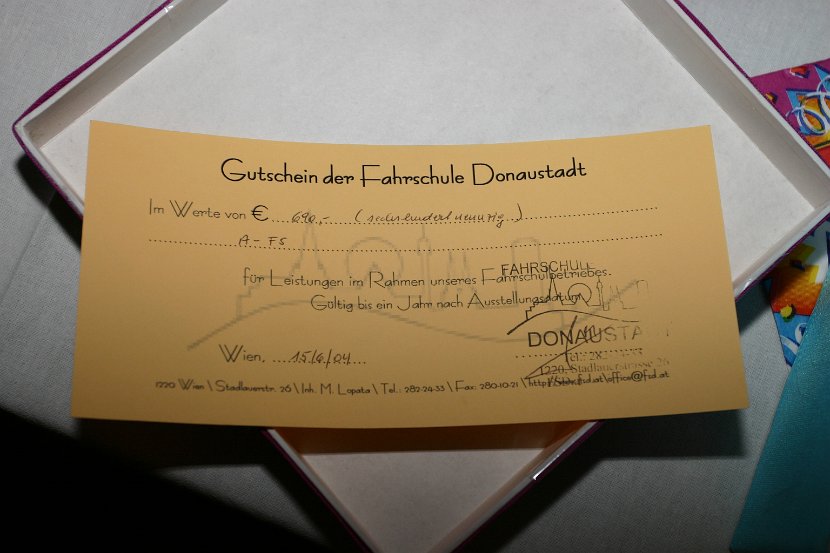 Gutschein der Fahrschule Donaustadt
Im Werte von € 690,- (sechshundertneunzig)
A - FS
für Leistungen im Rahmen unseres Fahrschulbetriebes.
Gültig bis ein Jahr nach Ausstellungsdatum
FAHRSCHULE
DONAUSTA
Wien, 15/6/04
1220 Stadlauerstrasse 26
1220 Wien \ Stadlauerstr. 26 \ Inh. M. Lopata \ Tel.: 282-24-33 \ Fax: 280-10-21 \ office@fsd.at